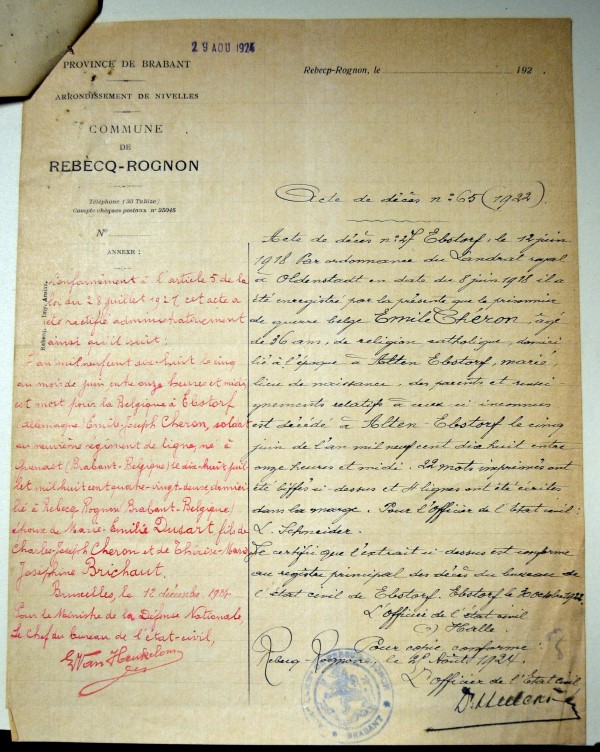 29 AOU 1924
PROVINCE DE BRABANT
ARRONDISSEMENT DE NIVELLES
COMMUNE
DE
REBECQ-ROGNON
Téléphone (30 Tubize)
Compte chèques postaux nº 25045
Nº
ANNEXE :
Rebecq-Rognon, le 192
Conformément à l'article 5 de la
loi du 28 juillet 1921 cet acte a
été rectifié administrativement
ainsi qu'il suit:
L'an mil neuf cent dix-huit le cinq
au mois de juin entre onze heures et midi
est mort pour la Belgique à Ebstorf
(Allemagne) Emile-Joseph Cheron, soldat
au neuvième régiment de ligne, né à
Quenast (Brabant-Belgique) le dix-huit juil-
let mil huit cent quatre-vingt-deux, domici-
lié à Rebecq-Rognon (Brabant-Belgique)
époux de Marie-Emilie Dusart, fils de
Charles-Joseph Cheron et de Thérèse-Marie
Josephine Brichaut.
Bruxelles, le 12 décembre 1924
Pour le Ministre de la Défense Nationale,
Le Chef du bureau de l'état-civil,
Acte de décès nº 65 (1922)
Acte de décès nº 27 Ebstorf, le 12 juin
1918 Par ordonnance du Landrat royal
à Oldenstadt en date du 8 juin 1918 il a
été enregistré par la présente que le prisonnier
de guerre belge Emile Chéron, âgé
de 36 ans, de religion catholique, domici-
lié à l'époque à Alten Ebstorf, marié,
lieu de naissance, des parents et rensei-
gnements relatifs à ceux ci inconnus
est décédé à Alten-Ebstorf le cinq
juin de l'an mil neuf cent dix huit entre
onze heures et midi. 22 mots imprimés ont
été biffés ci-dessus et 4 lignes ont été écrites
dans la marge. Pour l'Officier de l'Etat civil:
L. Schneider.
Je certifie que l'extrait ci dessus est conforme
au registre principal des décès du bureau de
l'état civil de Ebstorf. Ebstorf le octobre 1922
L'Officier de l'état civil
Halle.
Pour copie conforme:
Rebecq-Rognon, le 28 Août 1924.
L'Officier de l'Etat civil
BRABANT